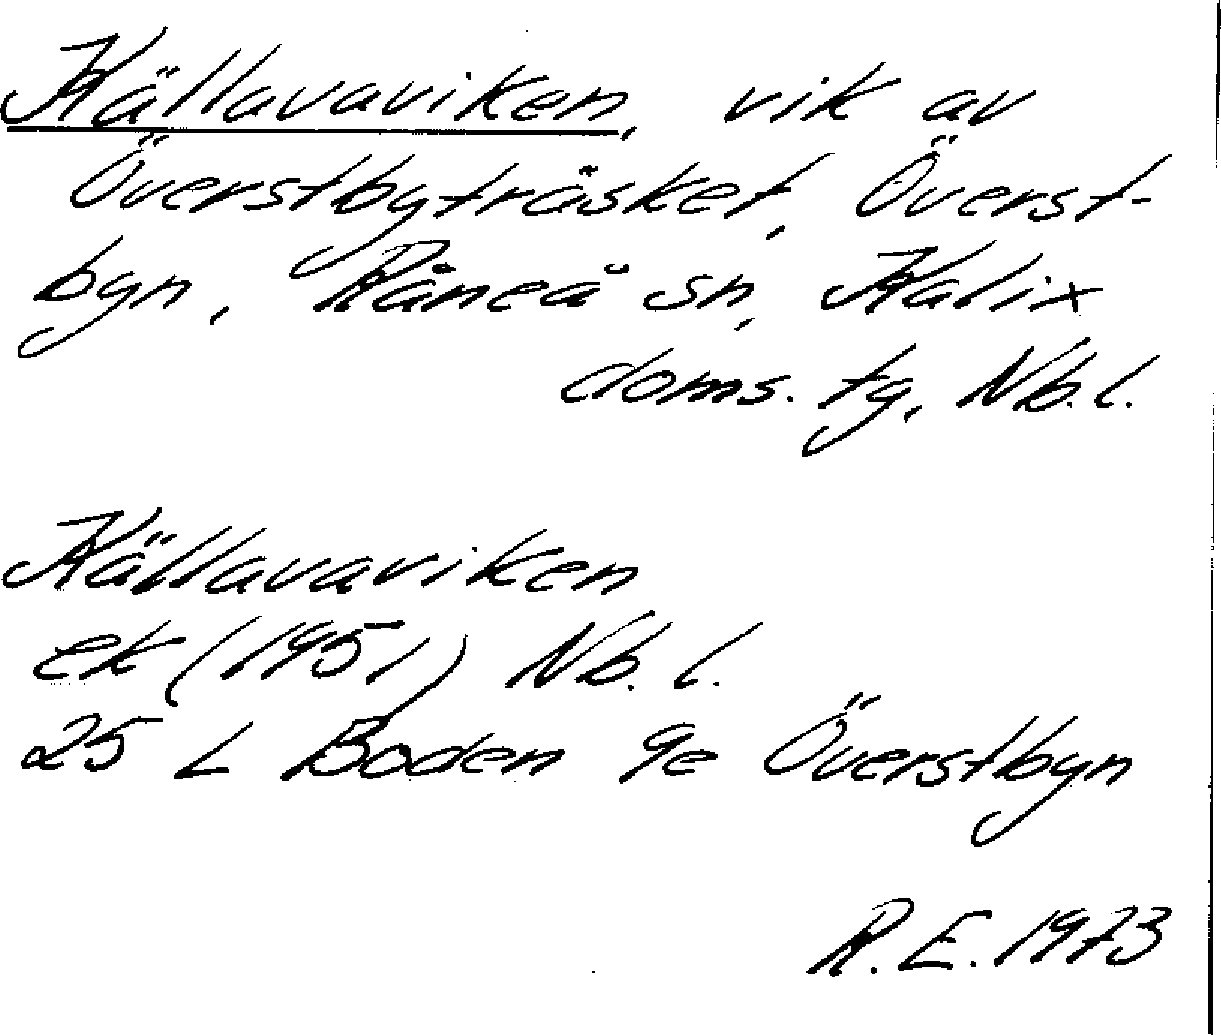 Källavaviken, vik av
Överstbyträsket, Överst-
byn, Råneå sn, Kalix
doms. tg, Nb.l.
Källavaviken
ek (1951) Nb. l.
25 L Boden 9e Överstbyn
R.E. 1973